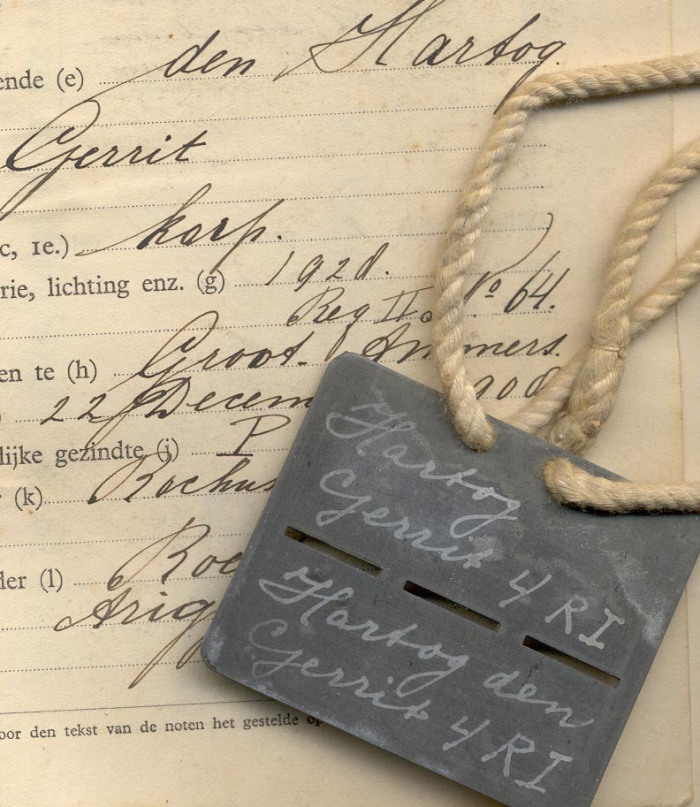 ende (e) den Hartog.
Gerrit
c, 1e.) korp.
rie, lichting enz. (g) 1928.
Reg II. No 64.
en te (h) Groot-Ammers.
22 Decem 908
lijke gezindte (j) P
(k) Rochus
der (l) Roc
Arig
oor den tekst van de noten het gestelde op
Hartog
Gerrit 4 RI
Hartog den
Gerrit 4 RI